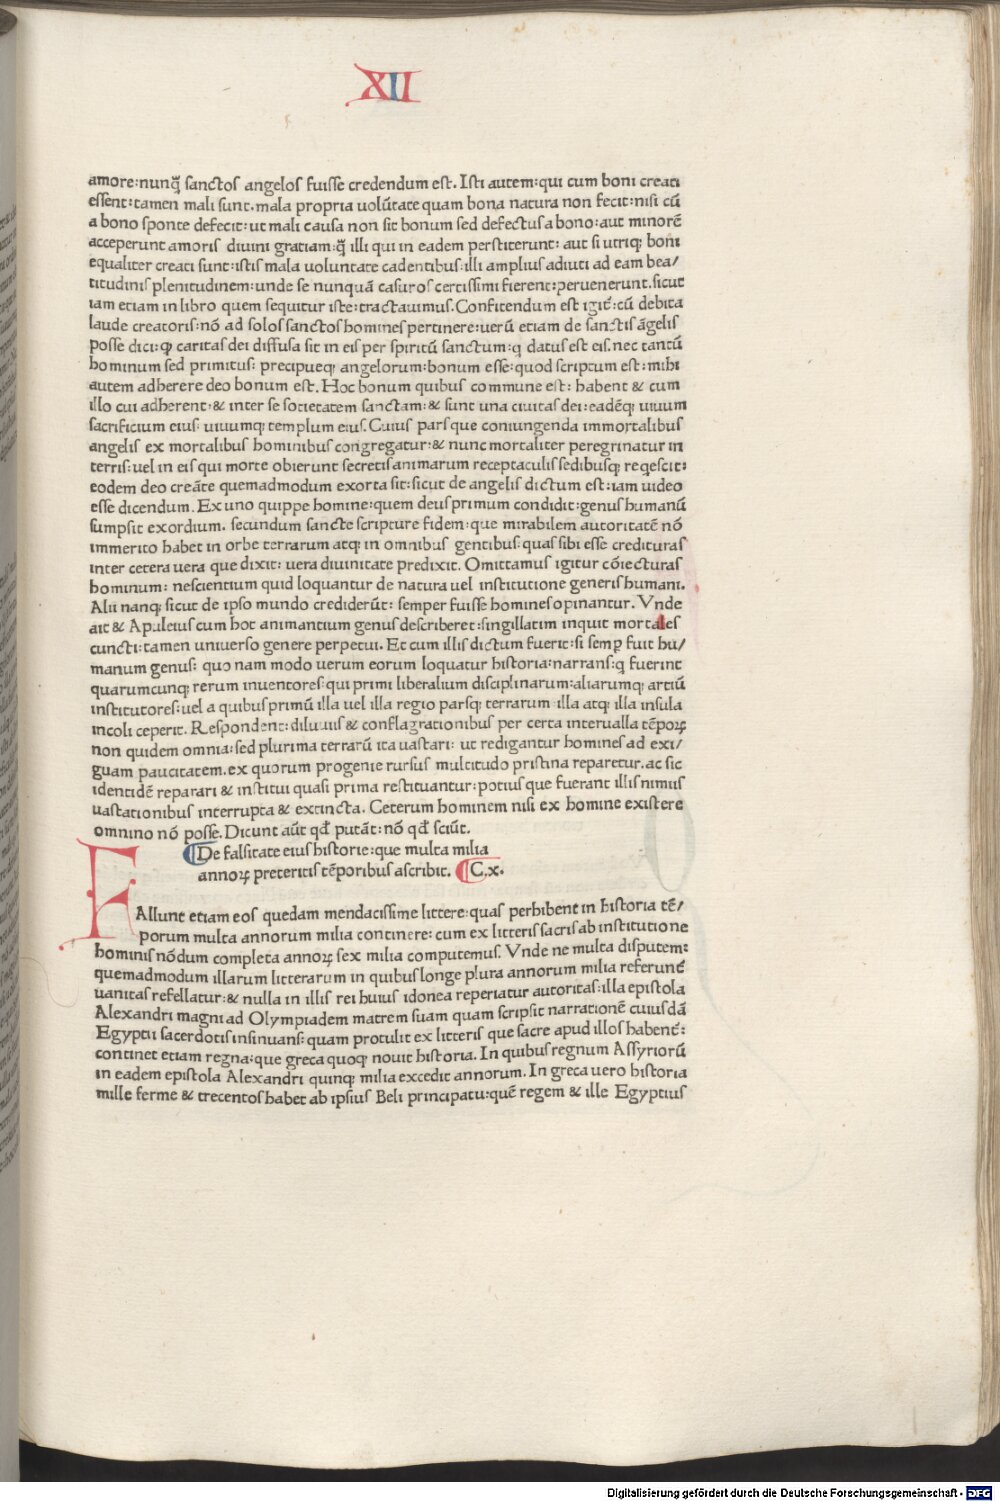 XII
amore:nunq̃ sanctos angelos fuisse credendum est. Isti autem:qui cum boni creati
essent:tamen mali sunt.mala propria uolũtate quam bona natura non fecit:nisi cũ
a bono sponte defecit:ut mali causa non sit bonum sed defectus a bono:aut minorẽ
acceperunt amoris diuini gratiam:q̃ illi qui in eadem perstiterunt: aut si utriqꝫ boni
equaliter creati sunt:istis mala uoluntate cadentibus:illi amplius adiuti ad eam bea/
titudinis plenitudinem:unde se nunquã casuros certissimi fierent:peruenerunt.sicut
iam etiam in libro quem sequitur iste:tractauimus. Confitendum est igit̃:cũ debita
laude creatoris:nõ ad solos sanctos homines pertinere:uerũ etiam de sanctis ãgelis
posse dici:ꝙ caritas dei diffusa sit in eis per spiritũ sanctum:q datus est eis.nec tantũ
hominum sed primitus: precipueqꝫ angelorum:bonum esse:quod scriptum est:mihi
autem adherere deo bonum est. Hoc bonum quibus commune est: habent & cum
illo cui adherent:& inter se societatem sanctam:& sunt una ciuitas dei:eadẽqꝫ uiuum
sacrificium eius: uiuumqꝫ templum eius. Cuius pars que coniungenda immortalibus
angelis ex mortalibus hominibus congregatur:& nunc mortaliter peregrinatur in
terris:uel in eis qui morte obierunt secretis animarum receptaculis sedibusqꝫ reqescit:
eodem deo creãte quemadmodum exorta sit:sicut de angelis dictum est:iam uideo
esse dicendum. Ex uno quippe homine:quem deus primum condidit:genus humanũ
sumpsit exordium. secundum sancte scripture fidem:que mirabilem autoritatẽ nõ
immerito habet in orbe terrarum atqꝫ in omnibus gentibus:quas sibi esse credituras
inter cetera uera que dixit: uera diuinitate predixit. Omittamus igitur cõiecturas
hominum: nescientium quid loquantur de natura uel institutione generis humani.
Alii nanqꝫ sicut de ipso mundo crediderũt: semper fuisse homines opinantur. Vnde
ait & Apuleius cum hoc animantium genus describeret:singillatim inquit mortales
cuncti:tamen uniuerso genere perpetui. Et cum illis dictum fuerit:si semp̱ fuit hu/
manum genus: quo nam modo uerum eorum loquatur historia:narrans:q fuerint
quarumcunqꝫ rerum inuentores:qui primi liberalium disciplinarum:aliarumqꝫ artiũ
institutores:uel a quibus primũ illa uel illa regio parsqꝫ terrarum:illa atqꝫ illa insula
incoli ceperit. Respondent:diluuiis & conflagrationibus per certa interualla tẽporꝝ
non quidem omnia:sed plurima terrarũ ita uastari: ut redigantur homines ad exi/
guam paucitatem.ex quorum progenie rursus multitudo pristina reparetur.ac sic
identidẽ reparari & institui quasi prima restituantur:potius que fuerant illis nimiis
uastationibus interrupta & extincta. Ceterum hominem nisi ex homine existere
omnino nõ posse. Dicunt aũt qd̃ putãt:nõ qd̃ sciũt.
De falsitate eius historie:que multa milia
annorꝝ preteritis tẽporibus ascribit. C.x.
FAllunt etiam eos quedam mendacissime littere:quas perhibent in historia tẽ/
porum multa annorum milia continere: cum ex litteris sacris ab institutione
hominis nõdum completa annorꝝ sex milia computemus. Vnde ne multa disputem:
quemadmodum illarum litterarum in quibus longe plura annorum milia referunt̃
uanitas refellatur:& nulla in illis rei huius idonea reperiatur autoritas:illa epistola
Alexandri magni ad Olympiadem matrem suam quam scripsit narrationẽ cuiusdã
Egyptii sacerdotis insinuans:quam protulit ex litteris que sacre apud illos habent̃:
continet etiam regna:que greca quoqꝫ nouit historia. In quibus regnum Assyriorũ
in eadem epistola Alexandri quinqꝫ milia excedit annorum. In greca uero historia
mille ferme & trecentos habet ab ipsius Beli principatu:quẽ regem & ille Egyptius
Digitalisierung gefördert durch die Deutsche Forschungsgemeinschaft - DFG